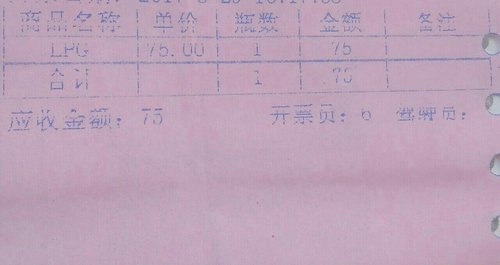 商品名称 单价 瓶数 金额 备注
LPG 75.00 1 75
合计 1 75
应收金额: 75 开票员: 6